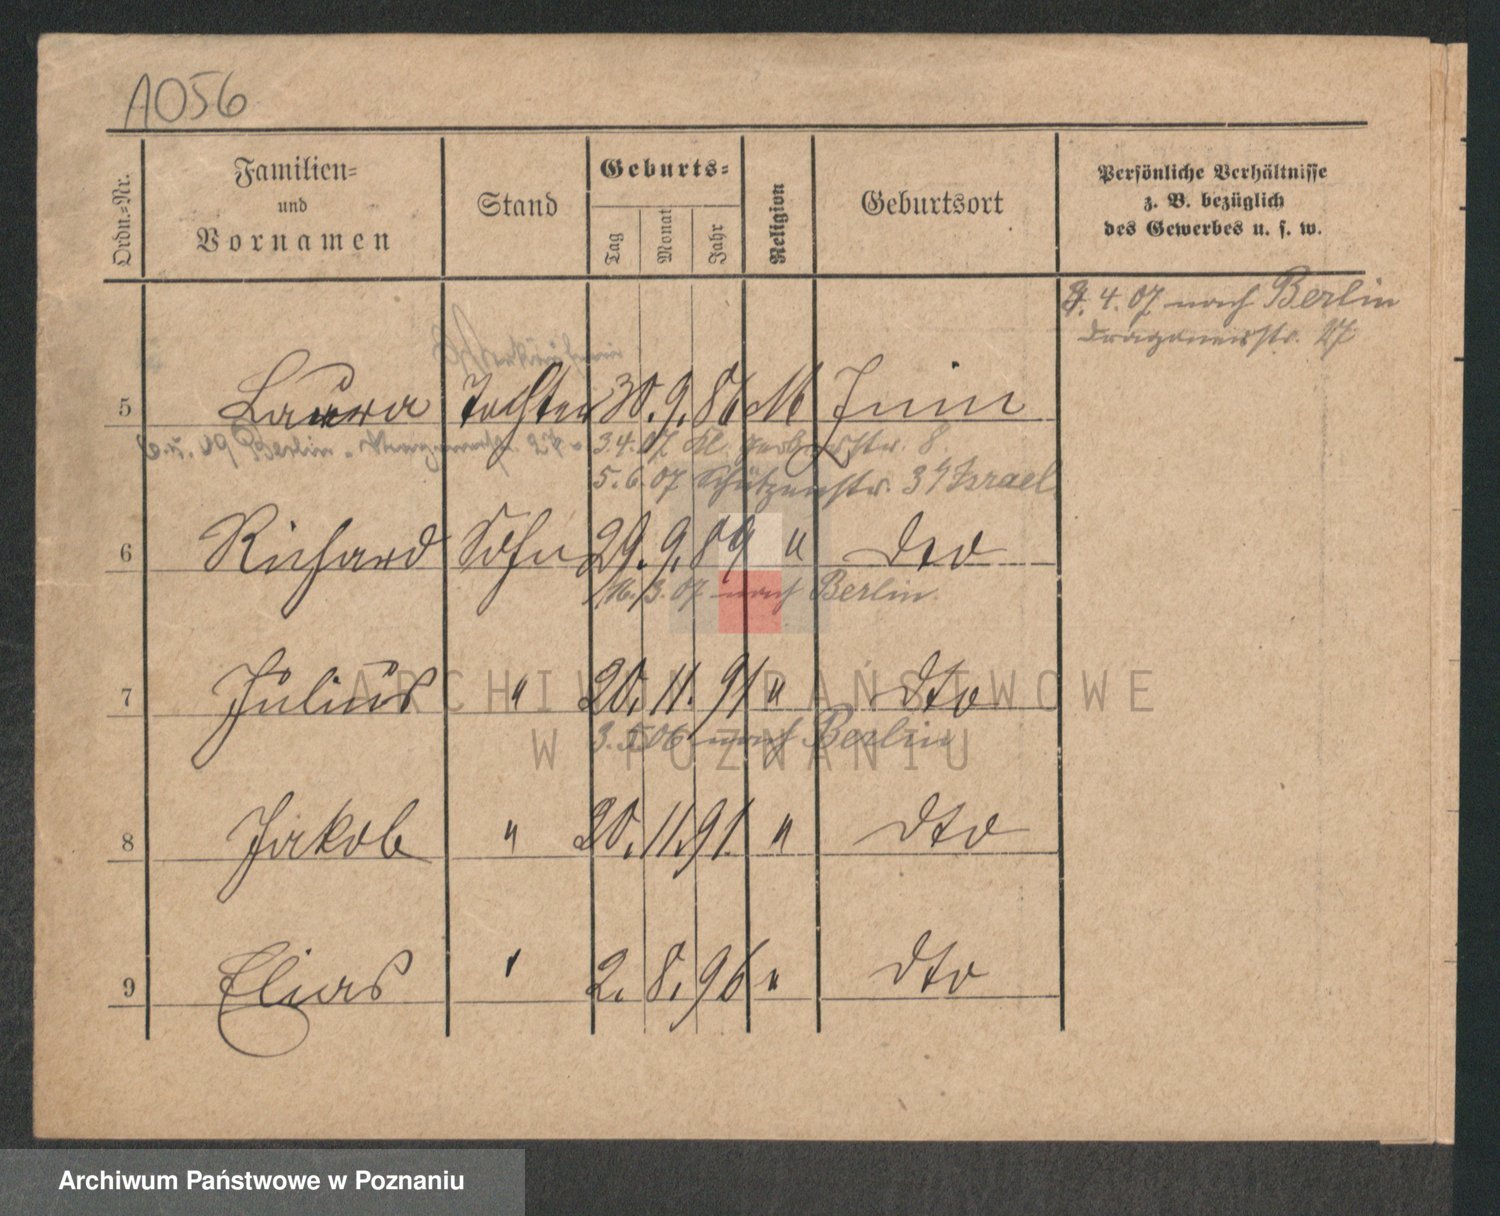 A056
Ordn.-Nr.
Familien-
und
Vornamen
Stand
Geburts-
Tag
Monat
Jahr
Religion
Geburtsort
Persönliche Verhältnisse
z. B. bezüglich
des Gewerbes u. s. w.
4. 07 nach Berlin
Dragonerstr. 27
Verkäuferin
5 Laura Tochter 30. 9. 86 M
3. 4. 07 Kl. Gerberstr. 8.
5. 6. 07 Schützenstr. 34 Israel
6 Richard Sohn 29. 9. 89 " dto
3. 07 nach Berlin.
7 Julius " 20. 11. 91 " dto
3. 5. 06 nach Berlin
8 Jakob " 20. 11. 91. " dto
9 Elias " 2. 8. 96 " dto
ARCHIWUM PAŃSTWOWE
W POZNANIU
Archiwum Państwowe w Poznaniu